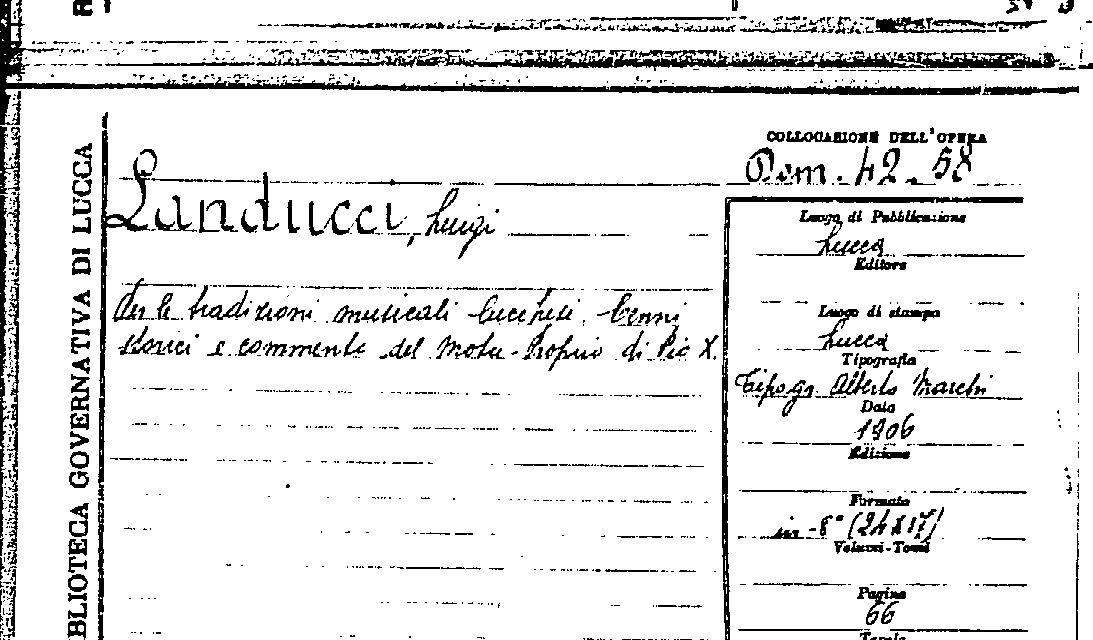 BLIOTECA GOVERNATIVA DI LUCCA
COLLOCAZIONE DELL'OPERA
Dom. 42.58
Landucci, Luigi
Per le tradizioni musicali lucchesi. Cenni
storici e commento del Motu-Proprio di Pio X.
Luogo di Pubblicazione
Lucca
Editore
Luogo di stampa
Lucca
Tipografia
Tipogr. Alberto Marchi
Data
1906
Edizione
Formato
in-8° (24x17)
Volumi-Tomi
Pagine
66
Tavole